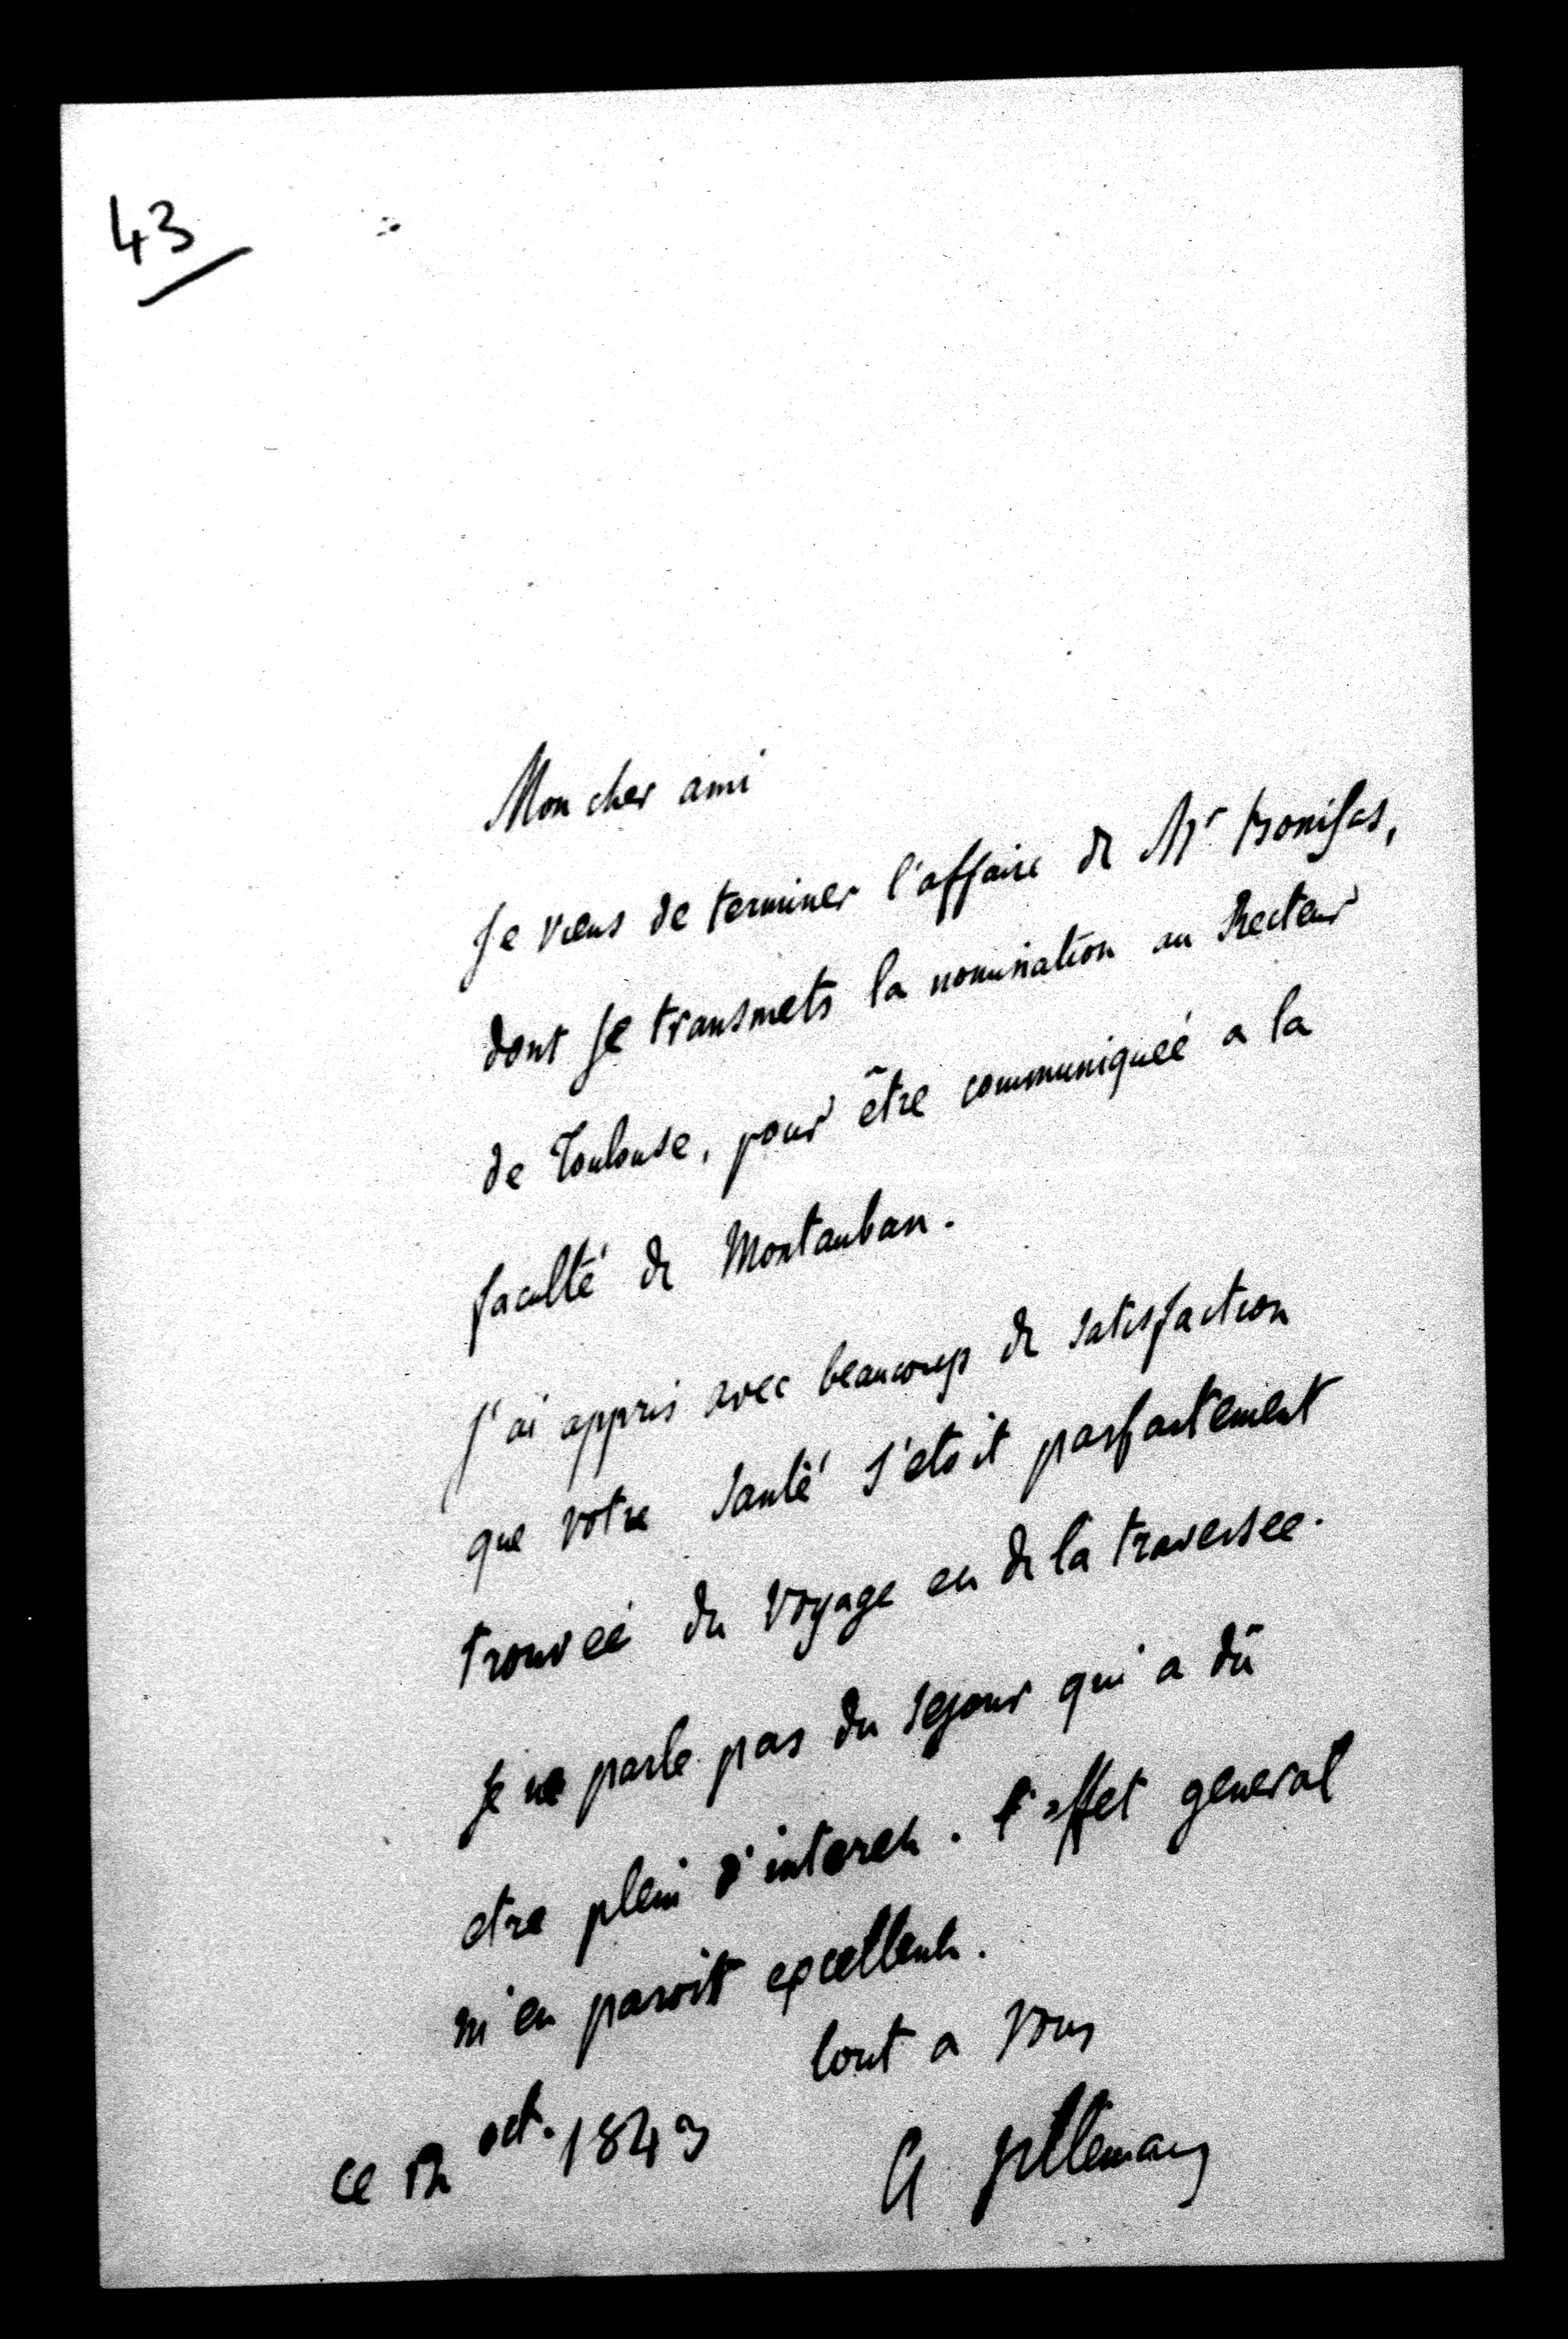 43
Mon cher ami
Je viens de terminer l'affaire de Mr Bonifas,
dont je transmets la nomination au Recteur
de Toulouse, pour être communiqueé a la
faculté de Montauban.
J'ai appris avec beaucoup de satisfaction
que votre santé s'etoit parfaitement
trouveé du voyage et de la traversee.
Je ne parle pas du sejour qui a dû
etre plein d'interet. l'effet general
m'en paroit excellent.
tout a vous
ce 12 oct. 1843
Villemain